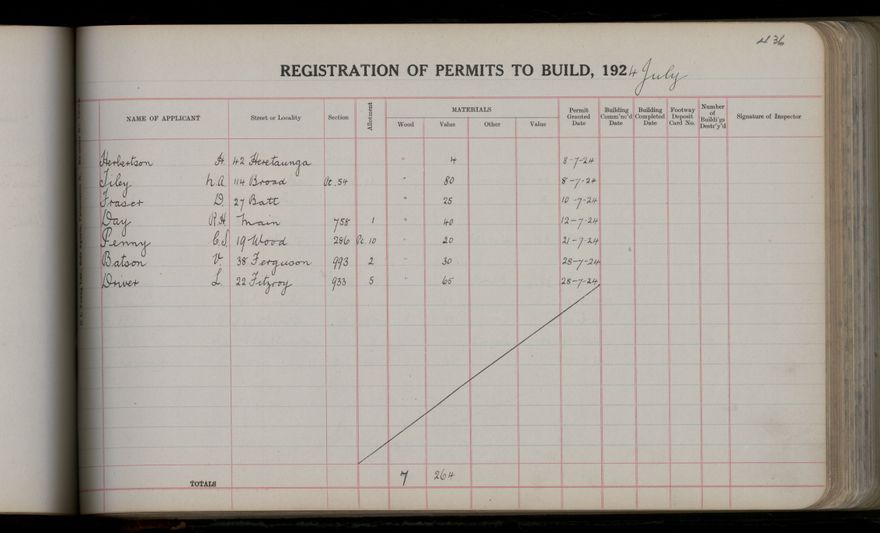 436
REGISTRATION OF PERMITS TO BUILD, 1924 July
NAME OF APPLICANT Street or Locality Section Allotment MATERIALS Wood Value Other Value Permit Granted Date Building Comm'nc'd Date Building Completed Date Footway Deposit Card No. Number of Buildi'gs Destr'y'd Signature of Inspector
Herbertson H. 42 Heretaunga " 4 8-7-24
Tiley N.A. 114 Broad Pt. 54 " 80 8-7-24
Fraser D. 27 Batt " 25 10-7-24
Day R.H. Main 758 1 " 40 12-7-24
Penny C.S. 19 Wood 286 Pt. 10 " 20 21-7-24
Batson V. 38 Ferguson 993 2 " 30 28-7-24
Driver L. 22 Fitzroy 933 5 " 65 28-7-24
TOTALS 7 264